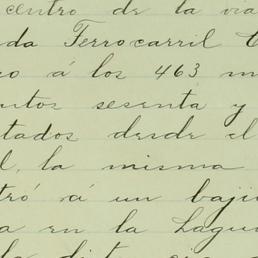 centro de la vía
da Ferrocarril C
o á los 463 m
entos sesenta y
tados desde el
l, la misma
tró á un bají
a en la Lagu